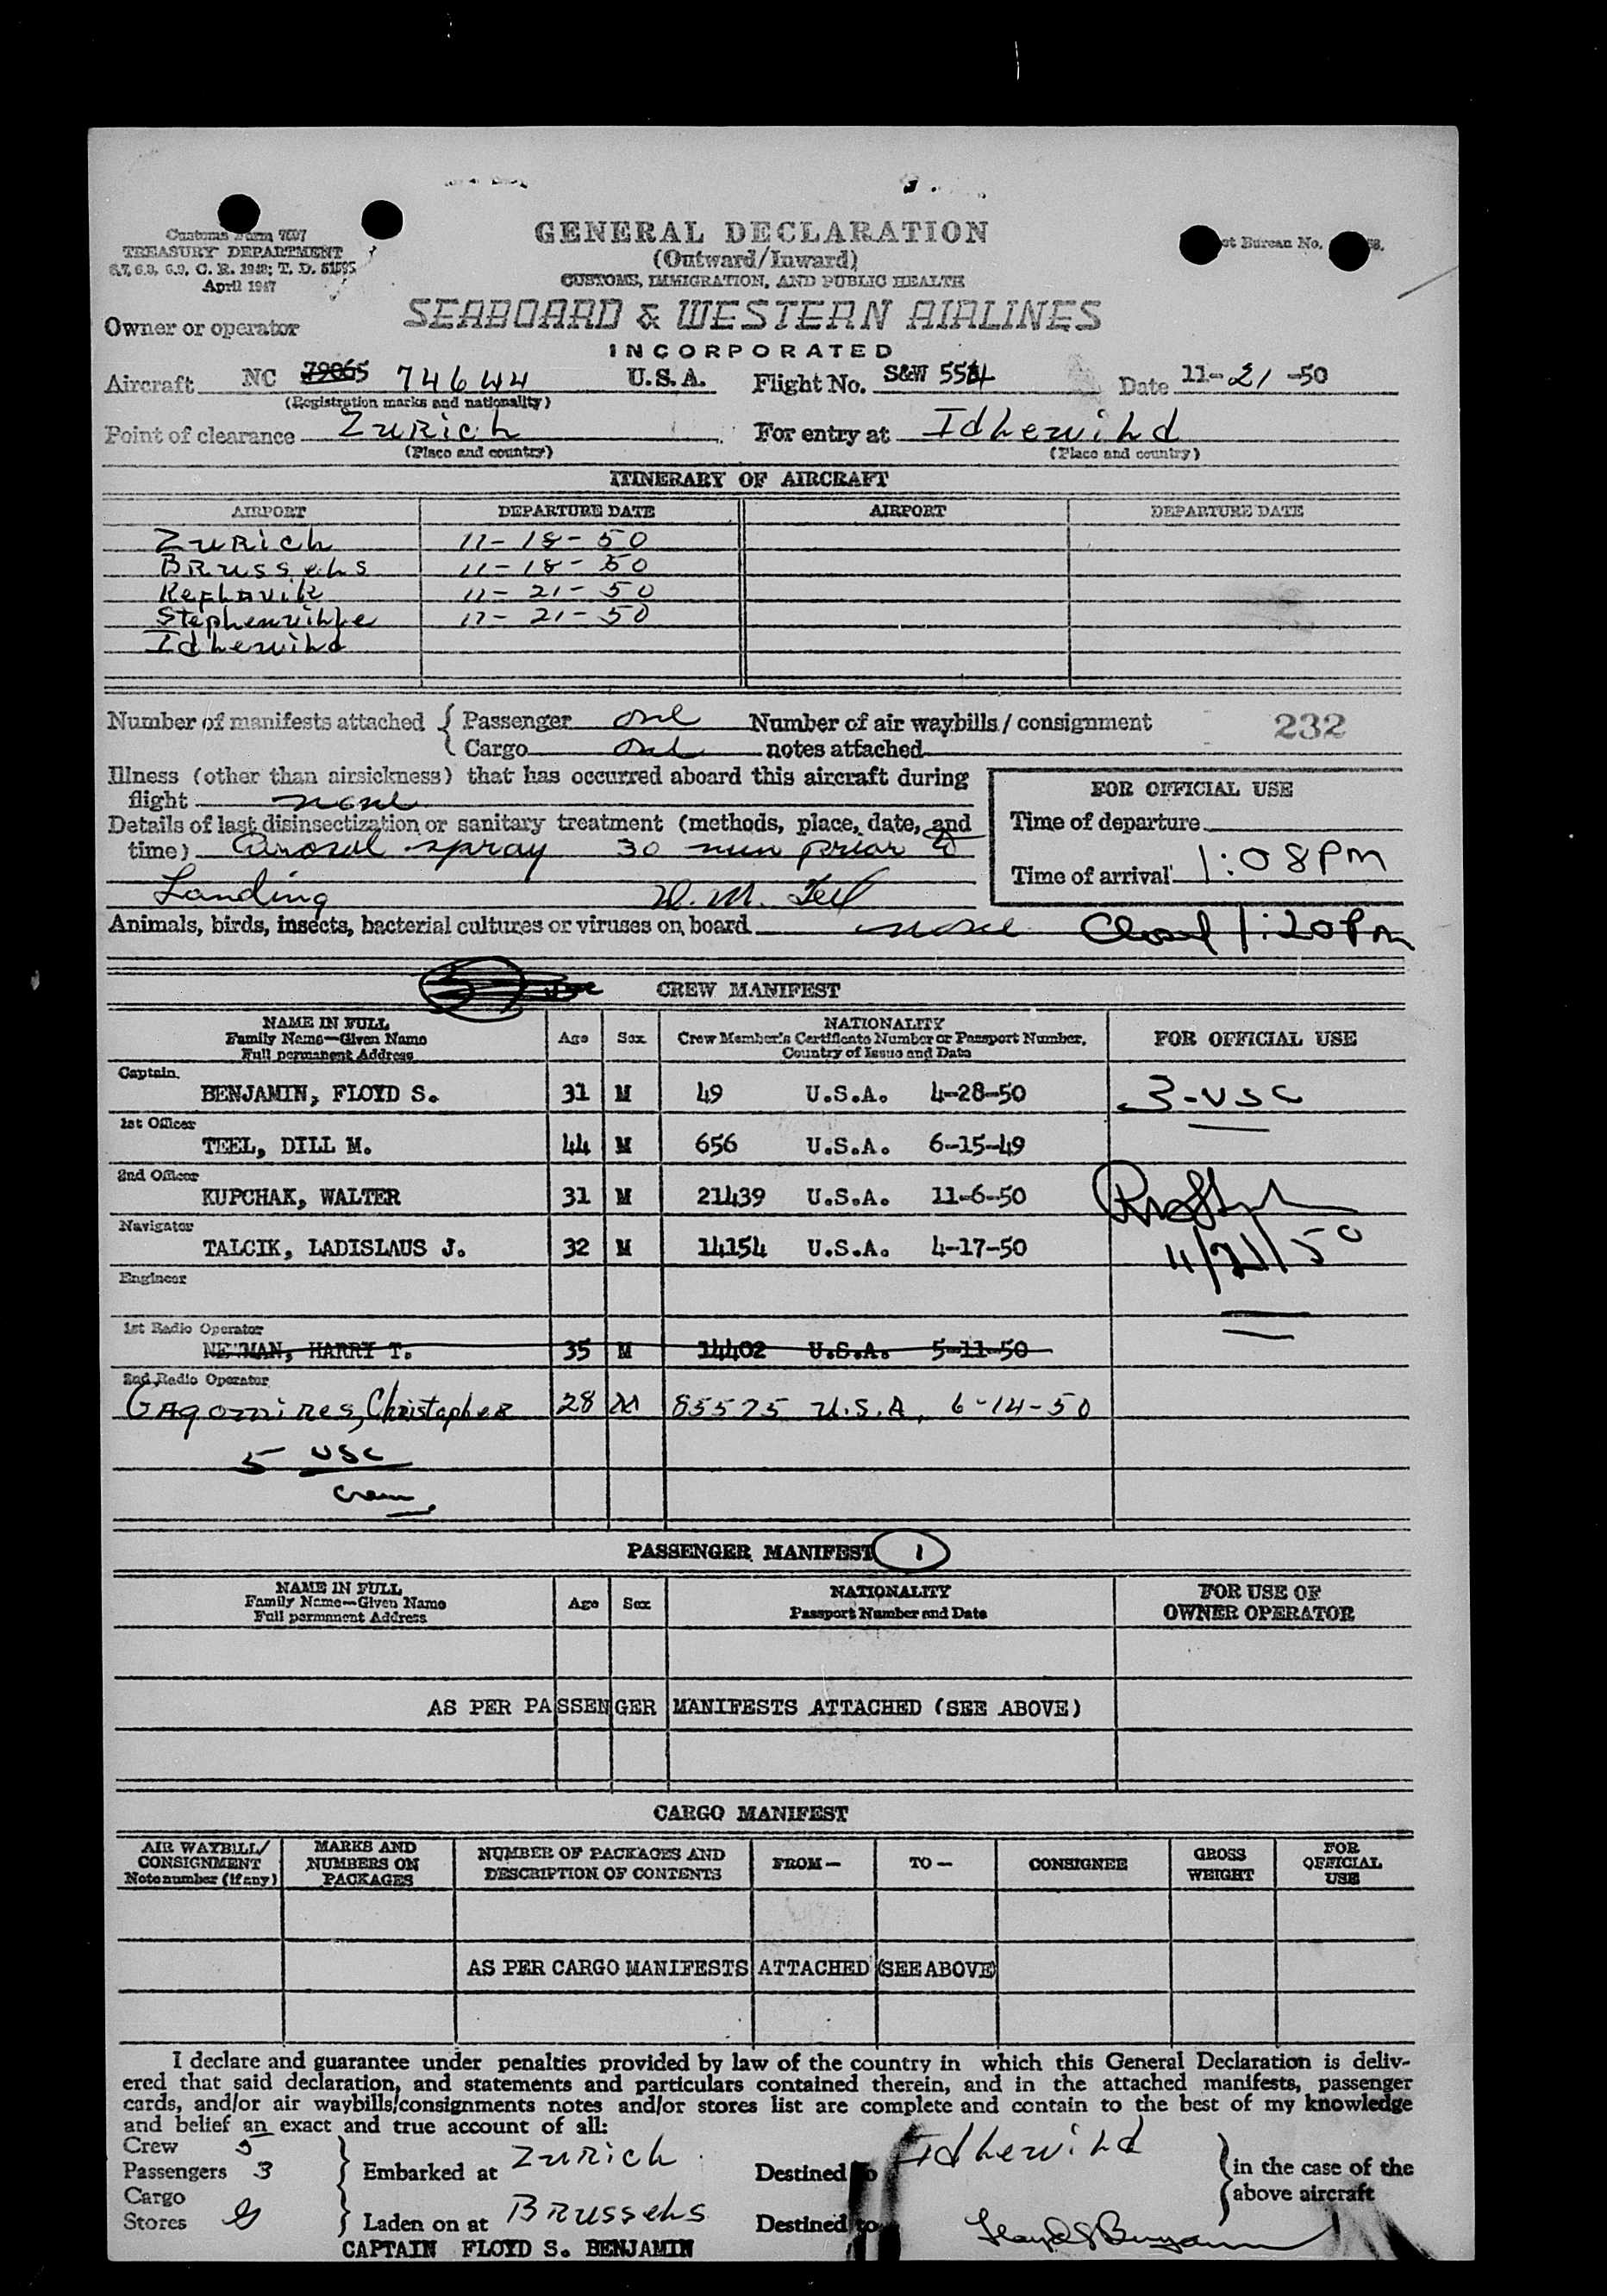 Customs Form 7507
TREASURY DEPARTMENT
6.7, 6.8, 6.9, C. R. 1943; T. D. 51595
April 1947
GENERAL DECLARATION
(Outward/Inward)
CUSTOMS, IMMIGRATION, AND PUBLIC HEALTH
Bureau No.
Owner or operator SEABOARD & WESTERN AIRLINES
INCORPORATED
Aircraft NC 79065 74644 U.S.A. Flight No. S&W 554 Date 11-21-50
(Registration marks and nationality)
Point of clearance Zurich For entry at Idlewild
(Place and country) (Place and country)
ITINERARY OF AIRCRAFT
AIRPORT DEPARTURE DATE AIRPORT DEPARTURE DATE
Zurich 11-18-50
Brussels 11-18-50
Keflavik 11-21-50
Stephenville 11-21-50
Idlewild
Number of manifests attached { Passenger one Number of air waybills/consignment 232
Cargo one notes attached
Illness (other than airsickness) that has occurred aboard this aircraft during
flight none
FOR OFFICIAL USE
Details of last disinsectization or sanitary treatment (methods, place, date, and
time) Aerosol spray 30 min prior to
Landing D. M. Teel
Time of departure
Time of arrival 1:08 PM
Animals, birds, insects, bacterial cultures or viruses on board none Closed 1:20 Pm
CREW MANIFEST
NAME IN FULL
Family Name—Given Name
Full permanent Address
Age Sex
NATIONALITY
Crew Member's Certificate Number or Passport Number,
Country of Issue and Date
FOR OFFICIAL USE
Captain
BENJAMIN, FLOYD S. 31 M 49 U.S.A. 4-28-50 3-USC
1st Officer
TEEL, DILL M. 44 M 656 U.S.A. 6-15-49
2nd Officer
KUPCHAK, WALTER 31 M 21439 U.S.A. 11-6-50
Navigator
TALCIK, LADISLAUS J. 32 M 14154 U.S.A. 4-17-50 11/21/50
Engineer
1st Radio Operator
NEWMAN, HARRY T. 35 M 14402 U.S.A. 5-11-50
2nd Radio Operator
Gagomires, Christopher 28 M 85575 U.S.A. 6-14-50
5 USC
Crew
PASSENGER MANIFEST 1
NAME IN FULL
Family Name—Given Name
Full permanent Address
Age Sex
NATIONALITY
Passport Number and Date
FOR USE OF
OWNER OPERATOR
AS PER PASSENGER MANIFESTS ATTACHED (SEE ABOVE)
CARGO MANIFEST
AIR WAYBILL/
CONSIGNMENT
Note number (if any)
MARKS AND
NUMBERS ON
PACKAGES
NUMBER OF PACKAGES AND
DESCRIPTION OF CONTENTS
FROM — TO — CONSIGNEE
GROSS
WEIGHT
FOR
OFFICIAL
USE
AS PER CARGO MANIFESTS ATTACHED (SEE ABOVE)
I declare and guarantee under penalties provided by law of the country in which this General Declaration is deliv-
ered that said declaration, and statements and particulars contained therein, and in the attached manifests, passenger
cards, and/or air waybills/consignments notes and/or stores list are complete and contain to the best of my knowledge
and belief an exact and true account of all:
Crew 5
Passengers 3 } Embarked at Zurich Destined to Idlewild } in the case of the
Cargo above aircraft
Stores } Laden on at Brussels Destined to Floyd S Benjamin
CAPTAIN FLOYD S. BENJAMIN